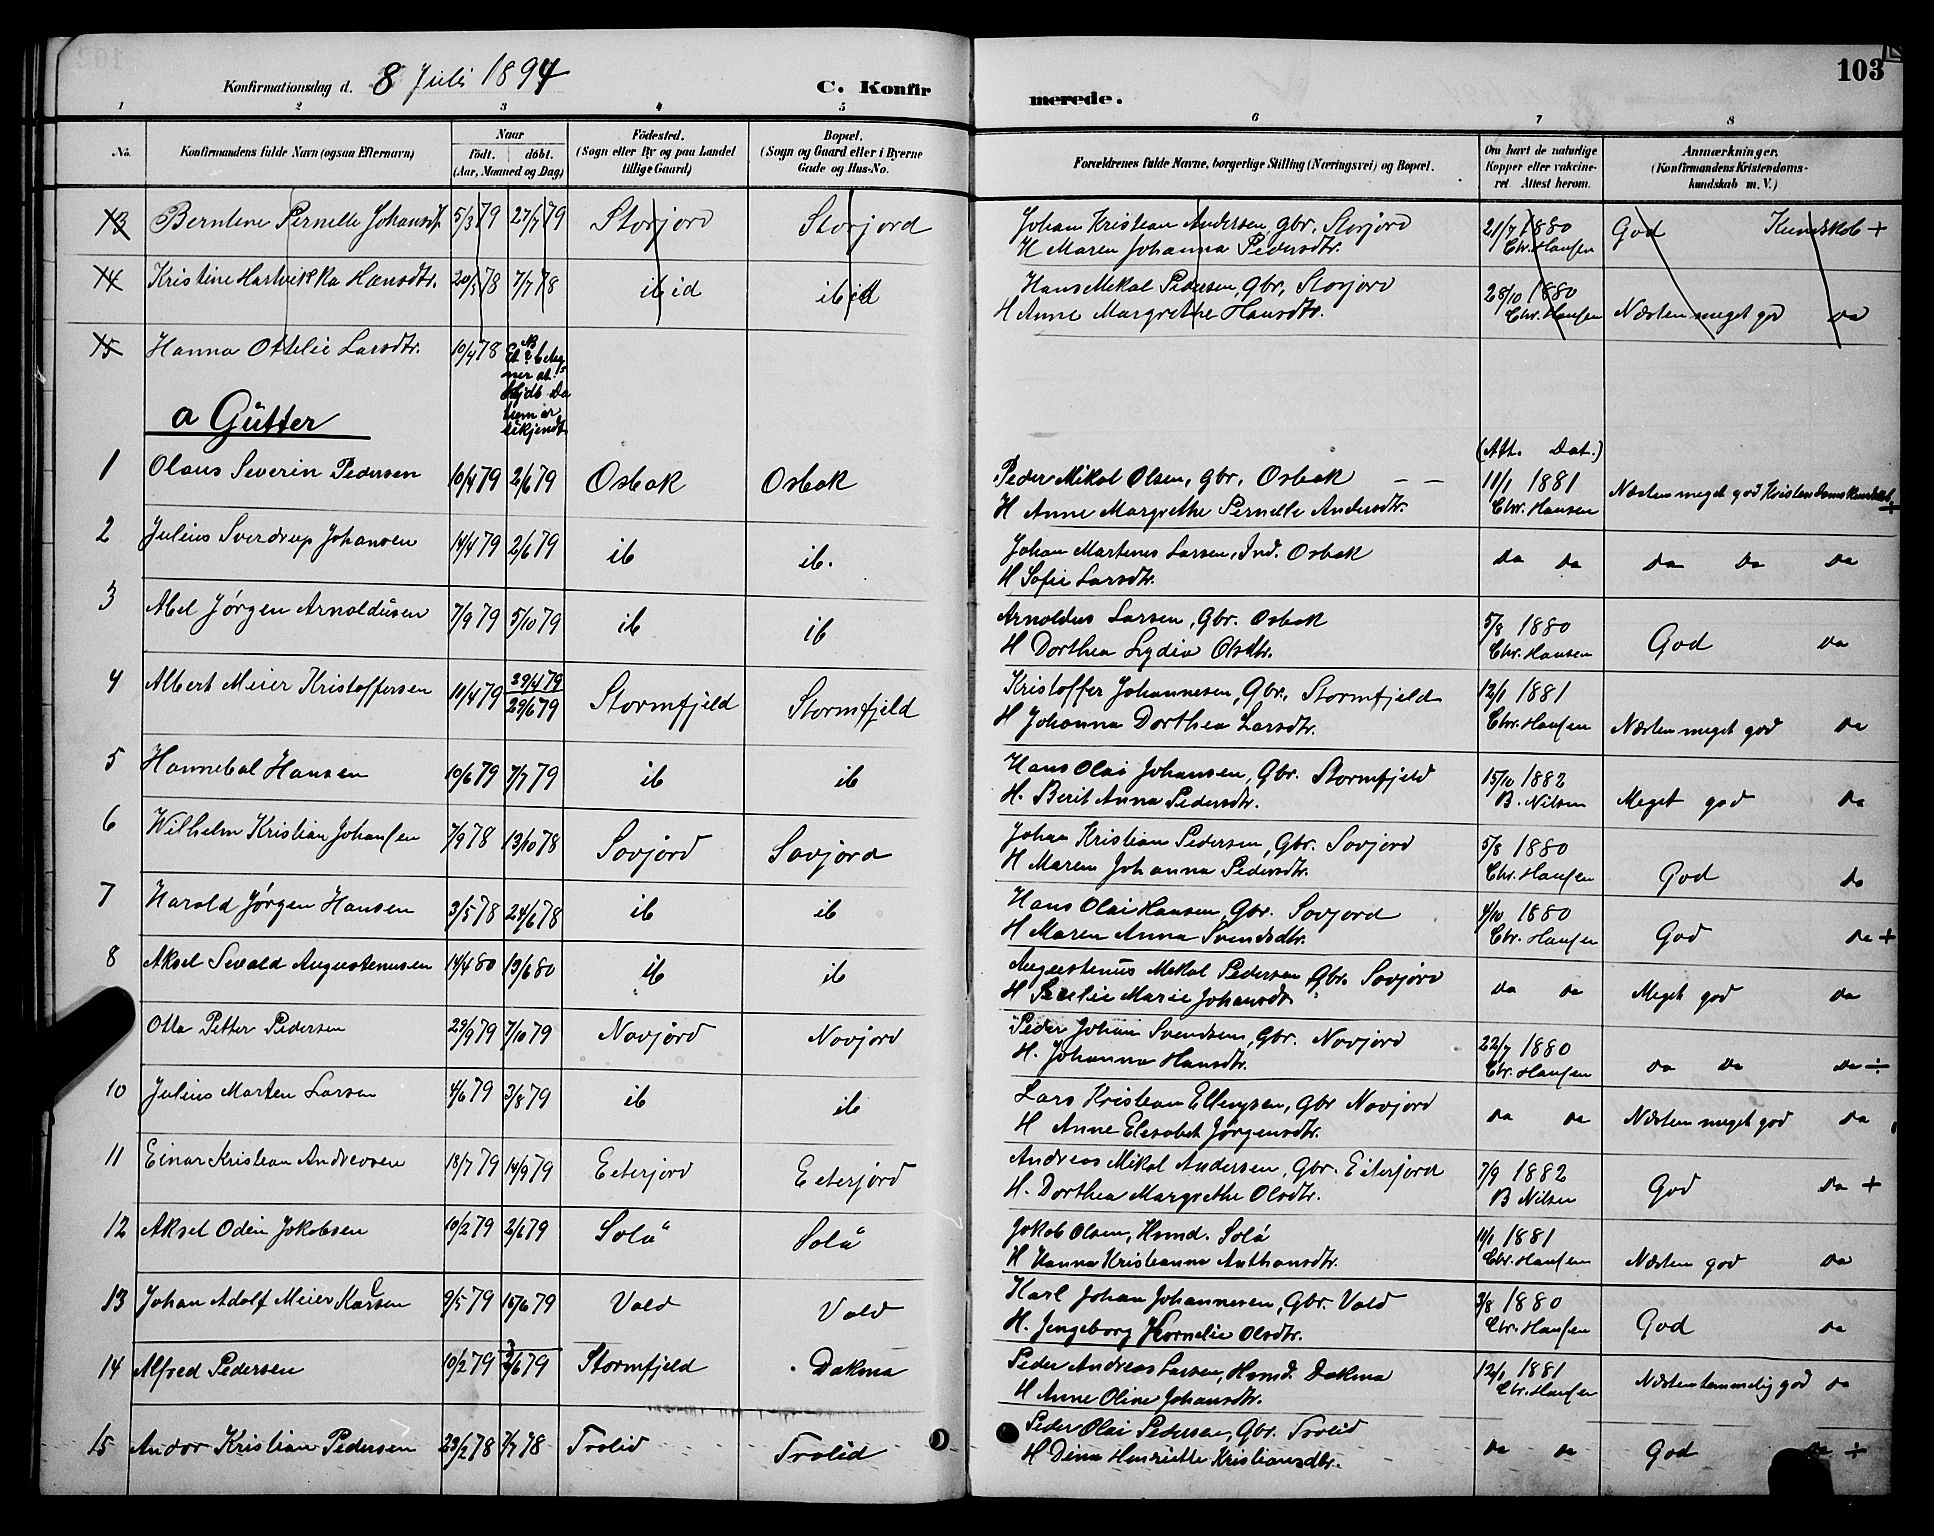 103
Konfirmationsdag d. 8 Juli 1894
C. Konfirmerede.
1 2 3 4 5 6 7 8
No.
Konfirmandens fulde Navn (ogsaa Efternavn)
Naar
født. døbt.
(Aar, Maaned og Dag)
Fødested.
(Sogn eller By og paa Landet
tillige Gaard)
Bopæl.
(Sogn og Gaard eller i Byerne
Gade og Hus-No.
Forældrenes fulde Navne, borgerlige Stilling (Næringsvei) og Bopæl.
Om havt de naturlige
Kopper eller vakcine-
ret. Attest herom.
Anmærkninger.
(Konfirmandens Kristendoms-
kundskab m. V.)
13 Berntine Pernelle Johansd. 5/3 79 27/7 79 Storjord Storjord Johan Kristian Andersen, Gbr. Storjord 21/7 1880 God Kundskab +
H Maren Johanna Pedersdtr. Chr. Hansen
14 Kristine Hartvikka Hansdtr. 20/5 78 7/7 78 ibid ibid Hans Mikal Pedersen, Gbr, Storjord 28/10 1880
H Anne Margrethe Hansdtr. Chr. Hansen Næsten meget god da
15 Hanna Ottelie Larsdtr. 10/4 78
a Gutter
(Att. Dat.)
1 Olaus Severin Pedersen 10/4 79 2/6 79 Osbak Osbak Peder Mikal Olsen, Gbr, Osbak — — 11/1 1881 Næsten meget god Kristendomskundskab +
H Anne Margrethe Pernelle Andersdtr. Chr. Hansen
2 Julius Sverdrup Johansen 14/4 79 2/6 79 ib ib. Johan Martenus Larsen, Ind. Osbak da da da da da
H Sofie Larsdtr.
3 Abel Jørgen Arnoldusen 7/9 79 5/10 79 ib ib Arnoldus Larsen, Gbr. Osbak 5/8 1880 God da
H Dorthea Lydia Olsdtr. Chr. Hansen
4 Albert Meier Kristoffersen 10/4 79 29/4 79 Stormfjeld Stormfjeld Kristoffer Johannesen, Gbr, Stormfjeld 12/1 1881
29/6 79 H Johanna Dorthea Larsdtr. Chr. Hansen Næsten meget god da
5 Hannebal Hansen 10/6 79 7/7 79 ib ib Hans Olai Johansen, Gbr. Stormfjeld 15/10 1882
H. Berit Anna Pedersdtr. B. Nilsen Meget god da
6 Wilhelm Kristian Johansen 7/9 78 13/10 78 Sovjord Sovjord Johan Kristian Pedersen, Gbr. Sovjord 5/8 1880
H Maren Johanna Pedersdtr. Chr. Hansen God da
7 Harald Jørgen Hansen 3/5 78 24/6 78 ib ib Hans Olai Hansen, Gbr. Sovjord 4/10 1880
H Maren Anna Svendsdtr. Chr. Hansen God da +
8 Aksel Sivald Augustenusen 14/4 80 13/6 80 ib ib Augustenus Mikal Pedersen Gbr. Sovjord da da Meget god da
H Secelie Marie Johansdt.
Otto Petter Pedersen 29/9 79 7/10 79 Novjord Novjord Peder Johan Svendsen, Gbr. Novjord 22/7 1880
H. Johanna Hansdtr. Chr. Hansen da da da ÷
10 Julius Marten Larsen 4/6 79 3/8 79 ib ib Lars Kristian Ellingsen, Gbr Novjord da da Næsten meget god da
H Anne Elesabet Jørgensdtr.
11 Einar Kristian Andreasen 18/7 79 14/9 79 Eeterjord Eeterjord Andreas Mikal Andersen, Gbr. Eiterjord 7/9 1882
H. Dorthea Margrethe Olsdtr. B Nilsen God da +
12 Aksel Odin Jakobsen 10/2 79 2/6 79 Solå Solå Jakob Olsen, Hsmd. Solå 11/1 1881
H Hanna Kristianna Anthonsdtr. Chr. Hansen Næsten god da
13 Johan Adolf Meier Karlsen 9/5 79 15/6 79 Vald Vald Karl Johan Johannesen, Gbr. Vald 3/8 1880
H. Jngeborg Kornelie Olsdtr. Chr. Hansen God da
14 Alfred Pedersen 10/2 79 2/6 79 Stormfjeld Dokmo Peder Andreas Larsen, Hsmd. Dokmo 12/1 1881
H Anne Oline Johansdtr. Chr. Hansen Næsten temmelig god da
15 Andor Kristian Pedersen 23/2 78 7/7 78 Trolid Trolid Peder Olai Pedersen, Gbr. Trolid da da God da ÷
H Dina Henriette Kristiansdtr.